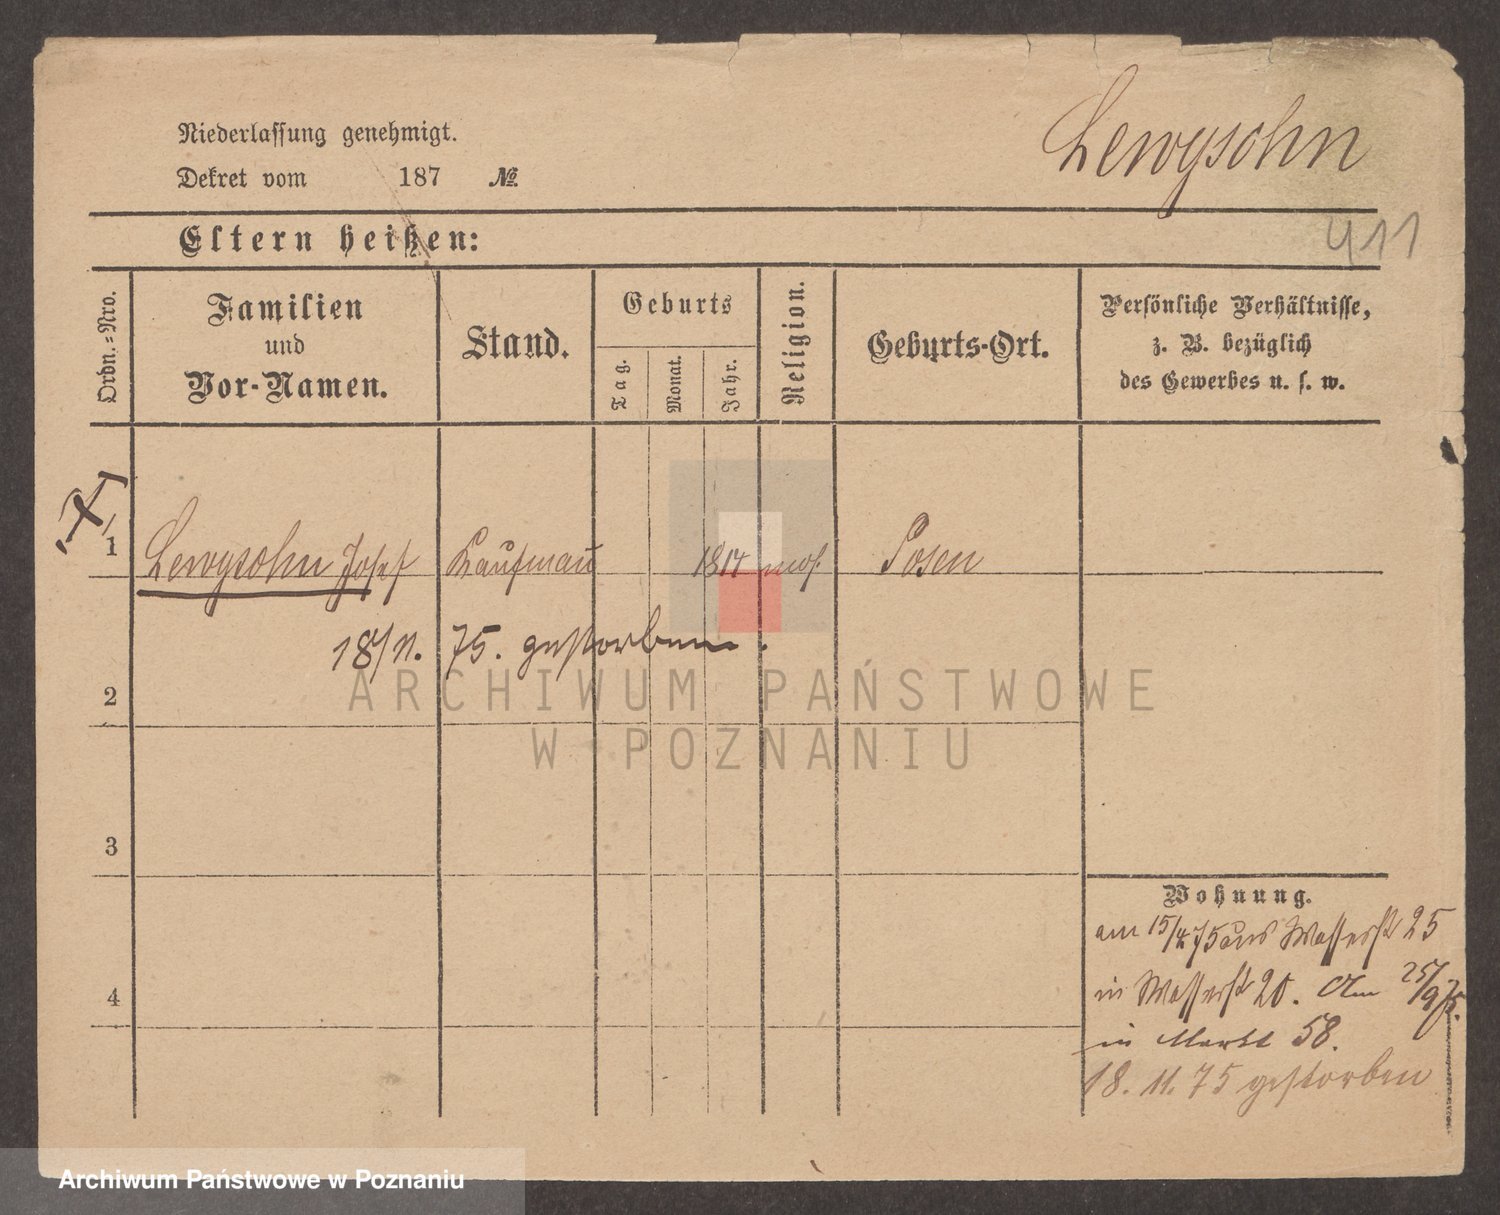 Niederlassung genehmigt.
Dekret vom 187 №
Lewysohn
411
Eltern heißen:
Ordn.=Nro.
Familien
und
Vor-Namen.
Stand.
Geburts
Tag.
Monat.
Jahr.
Religion.
Geburts-Ort.
Persönliche Verhältnisse,
z. B. bezüglich
des Gewerbes u. s. w.
1 Lewysohn Josef Kaufmañ mos. Posen
18/11. 75. gestorben.
2
3
4
Wohnung.
am 15/4 75 aus Wasserst 25
in Wasserst 20. Am 25/9 75.
in Markt 58.
18. 11. 75 gestorben
ARCHIWUM PAŃSTWOWE
W POZNANIU
Archiwum Państwowe w Poznaniu